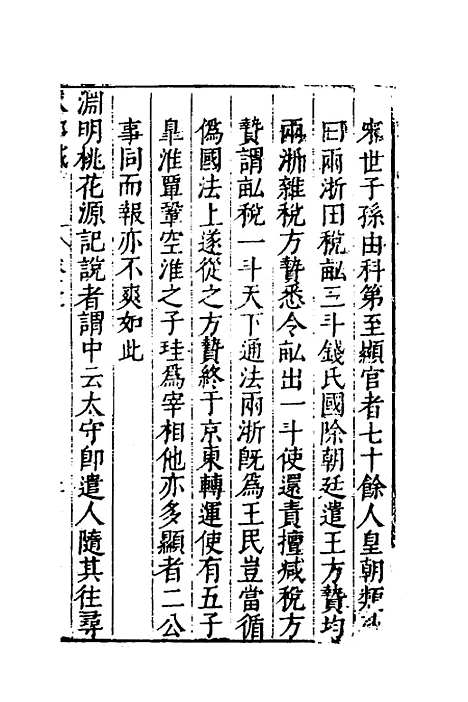 宋世子孫由科第至顯官者七十餘人皇朝類苑
曰兩浙田稅畝三斗錢氏國除朝廷遣王方贄均
兩浙雜稅方贄悉令畝出一斗使還責擅减稅方
贄謂畝稅一斗天下通法兩浙既爲王民豈當循
僞國法上遂從之方贄終于京東轉運使有五子
皐准覃鞏罕准之子珪爲宰相他亦多顯者二公
事同而報亦不爽如此
淵明桃花源記說者謂中云太守即遣人隨其往尋